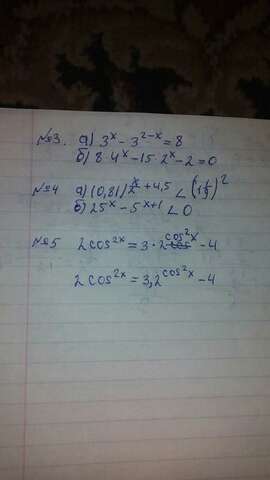 №3. а) 3^x - 3^{2-x} = 8
б) 8·4^x - 15 2^x - 2 = 0
№4 а) (0,81)^{x/2 + 4,5} <
б) 25^x - 5^{x+1} < 0
№5 2cos^{2x} = 3·2^{cos^2x} - 4
2cos^{2x} = 3,2^{cos^2x} - 4